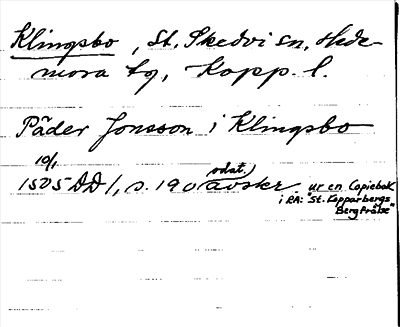 Klingsbo, St. Skedvi sn, Hede-
mora tg, Kopp. l.
Päder Jonsson i Klingsbo
10/1
1505 DD/, s. 190 odat. avskr. ur en Copiebok
i RA: "St. Kopparbergs
Bergfrälse"